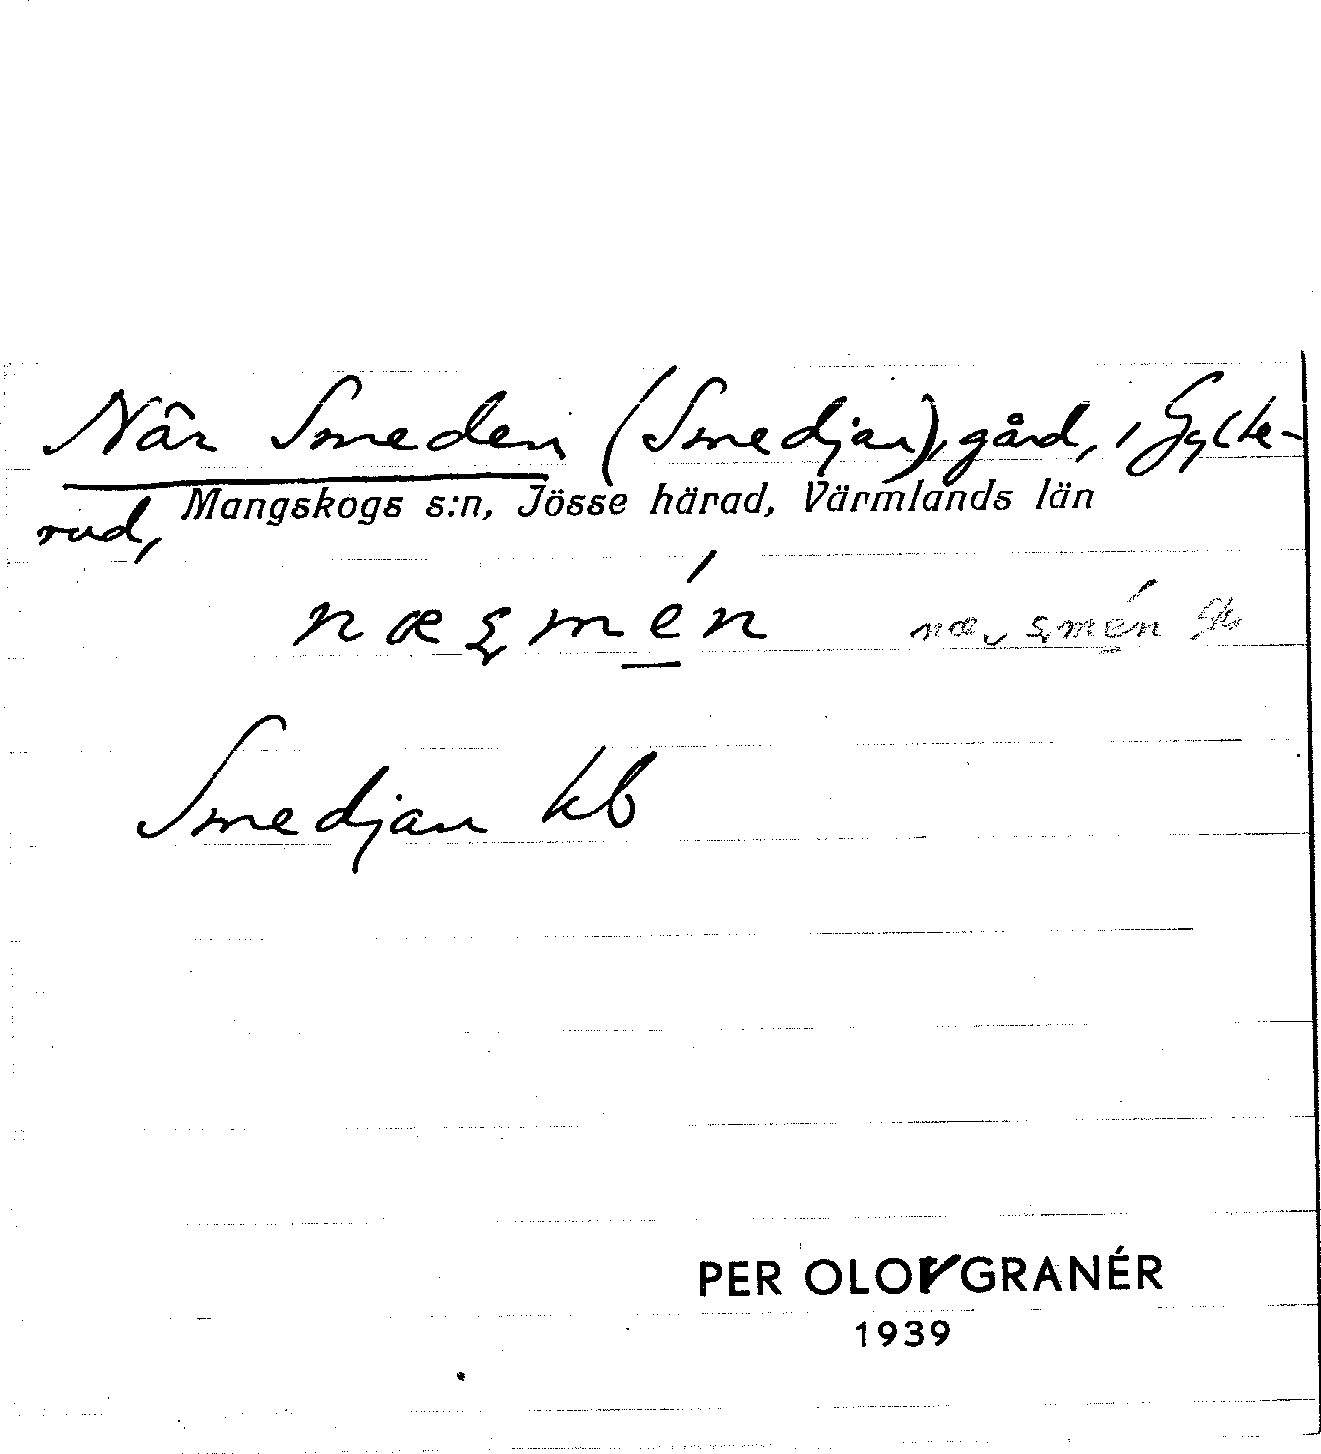 När Smeden (Smedjan), gård, i Gylte-
rud, Mangskogs s:n, Jösse härad, Värmlands län
Smedjan kb
PER OLOV GRANÉR
1939